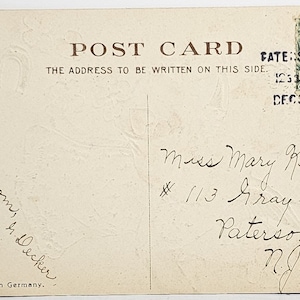 POST CARD
THE ADDRESS TO BE WRITTEN ON THIS SIDE.
DEC
Miss Mary
# 113 Gray
Paterso
N.J
Decker
n Germany.